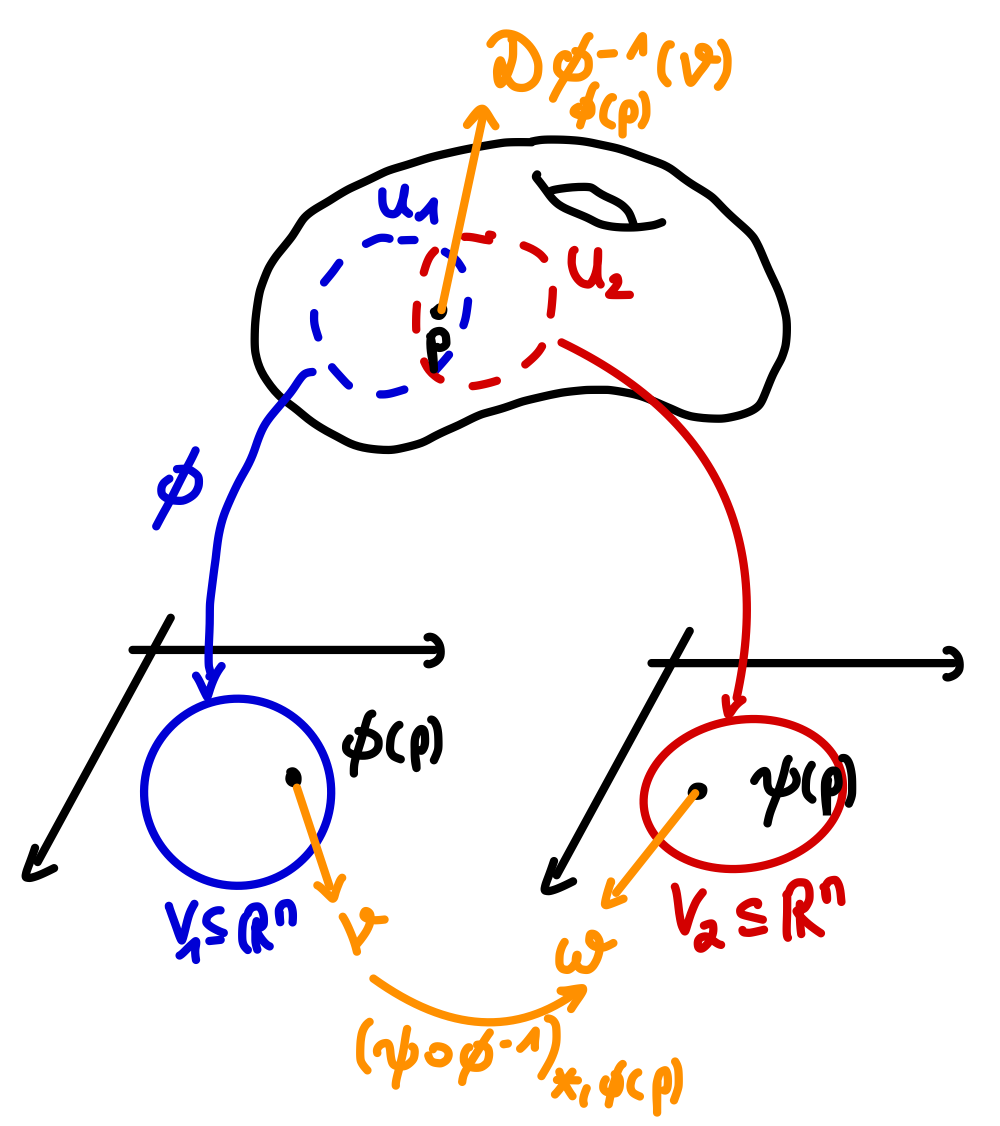 Dϕ⁻¹(v)
ϕ(p)
U₁
U₂
p
ϕ
ϕ(p)
ψ(p)
V₁⊆ℝⁿ
V₂⊆ℝⁿ
v
w
(ψ∘ϕ⁻¹)*,ϕ(p)